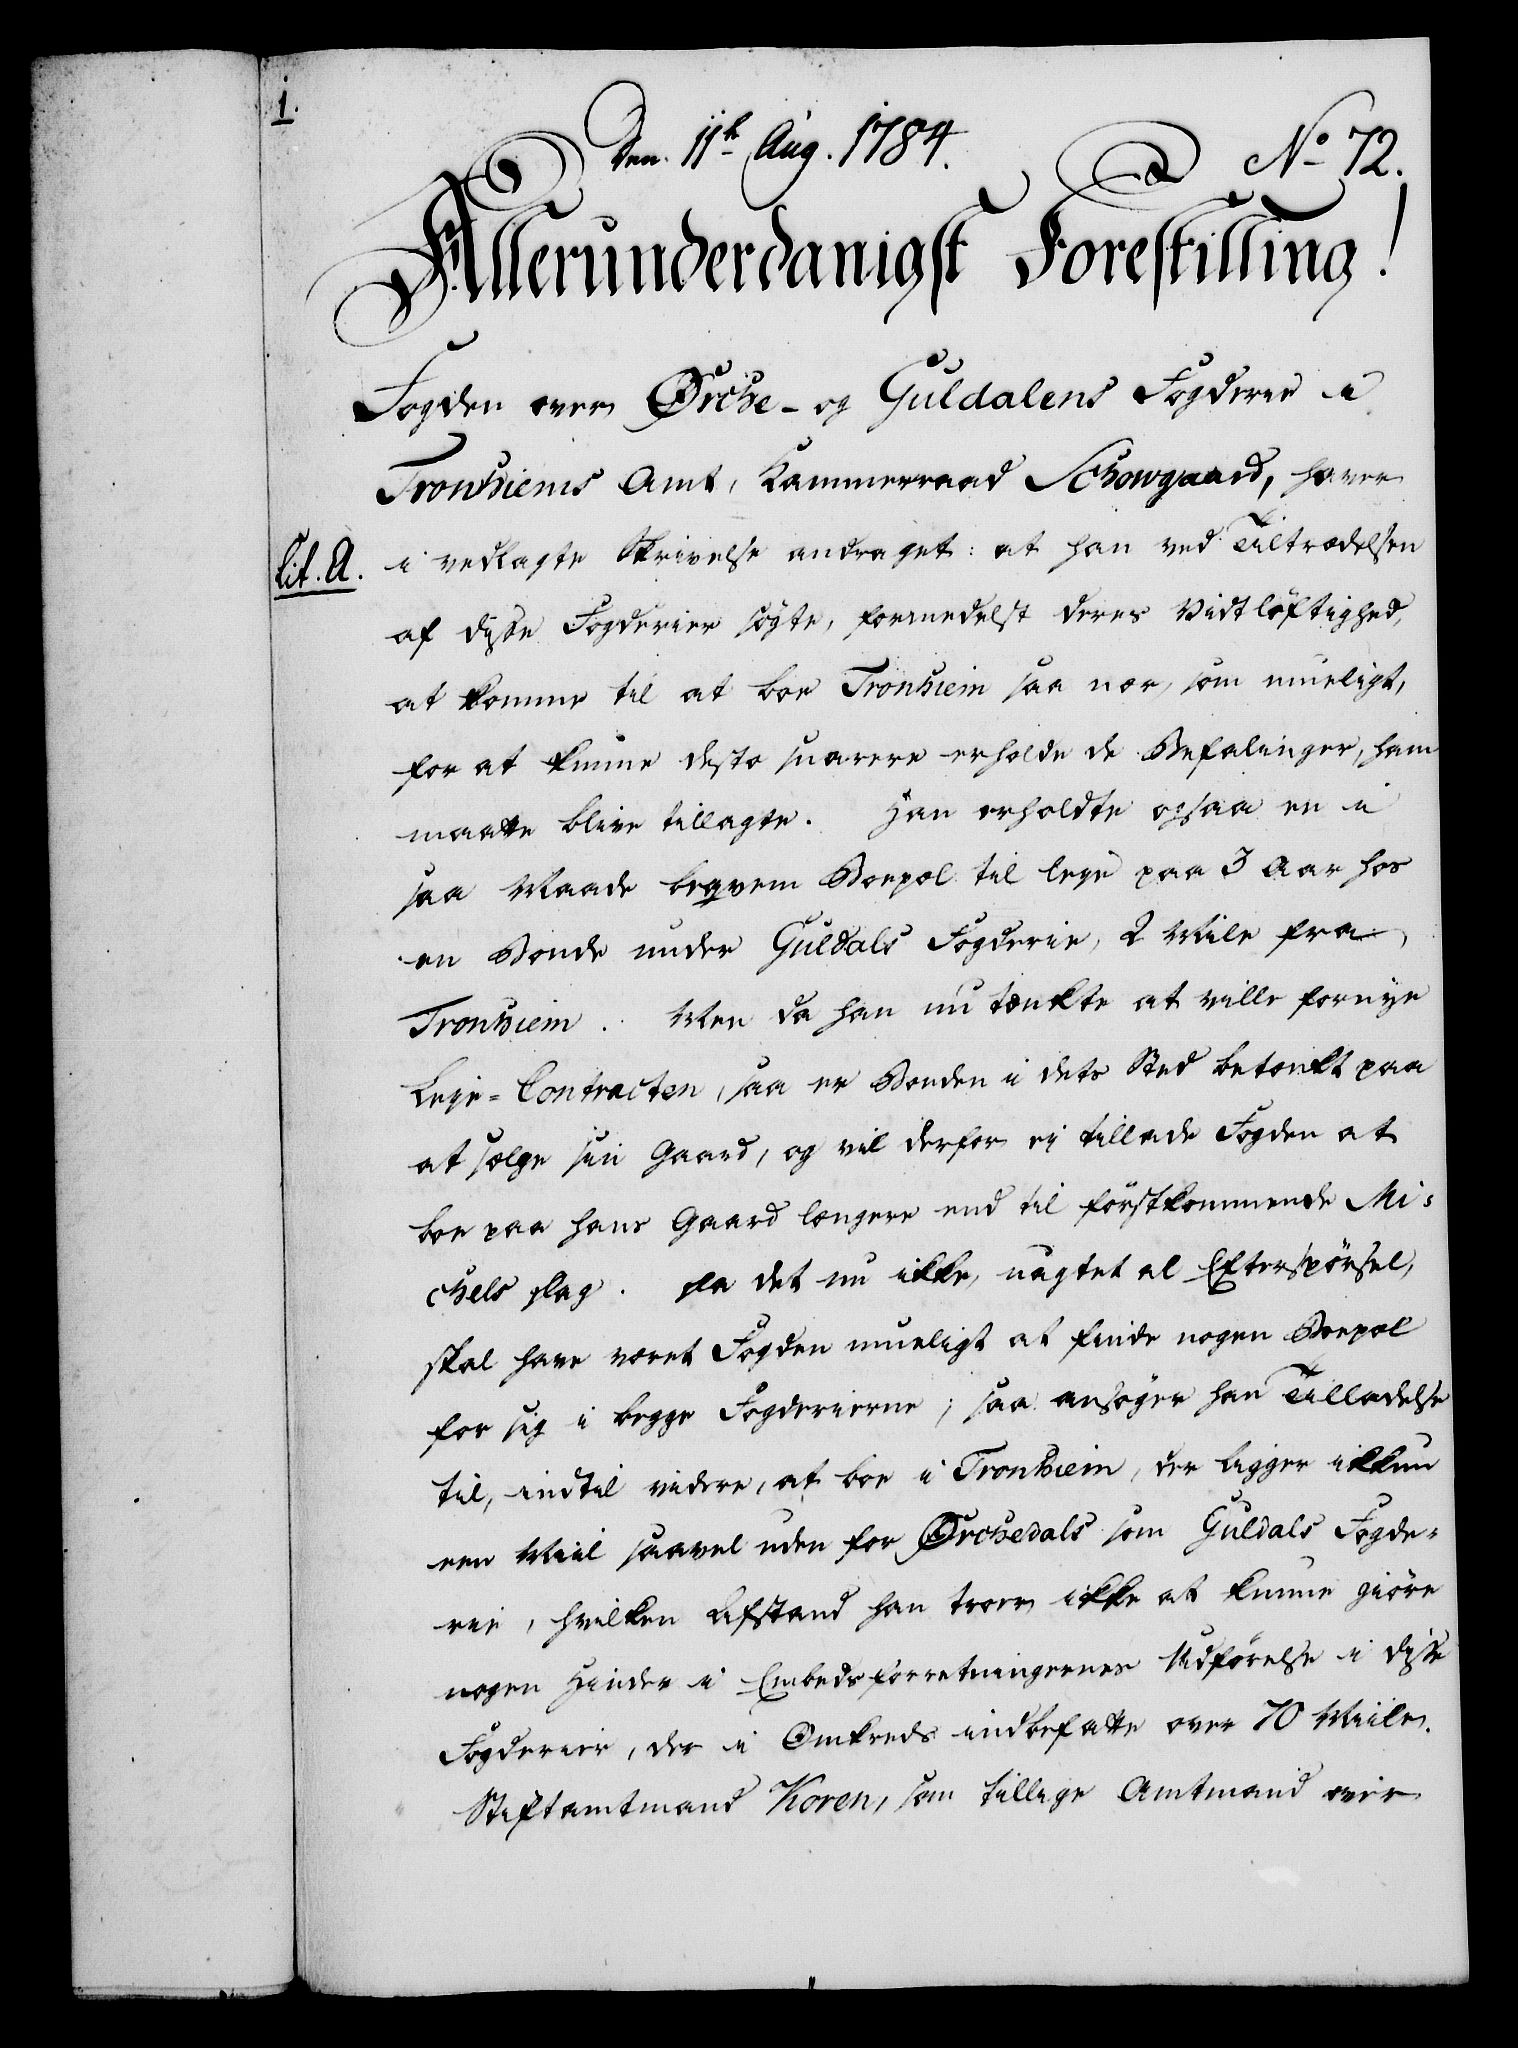 1.
Den 11te Aug. 1784.
No 72.
Allerunderdanigst Forestilling!
Fogden over Orche- og Guldalens Fogderie i
Tronhiems Amt, Kammerraad Schowgaard, haver
Lit. A.
i vedlagte Skrivelse andraget: at han ved Tiltrædelsen
af disse Fogderier søgte, formedelst deres Vidtløftighed,
at komme til at boe Tronhiem saa nær, som mueligt,
for at kunne desto snarere erholde de Befalinger, ham
maatte blive tillagte. Han erholdte ogsaa en i
saa Maade beqvem Boepæl til leye paa 3 Aar hos
en Bonde under Guldals Fogderie, 2 Mile fra
Tronhiem. Men da han nu tænkte at ville fornye
Leye-Contracten, saa er Bonden i dets Sted betænkt paa
at sælge sin Gaard, og vil derfor ej tillade Fogden at
boe paa hans Gaard længere end til førstkommende Mi-
chels Dag. Da det nu ikke, uagtet al Efterspørsel,
skal have været Fogden mueligt at finde nogen Boepæl
for sig i begge Fogderierne; saa ansøger han Tilladelse
til, indtil videre, at boe i Tronhiem, der ligger ikkun
een Miil saavel uden for Orchedals som Guldals Fogde-
rie, hvilken Afstand han troer ikke at kunne giøre
nogen Hinder i Embedsforretningernes Udførelse i disse
Fogderier, der i Omkreds indbefatte over 70 Miile.
Stiftamtmand Koren, som tillige Amtmand over